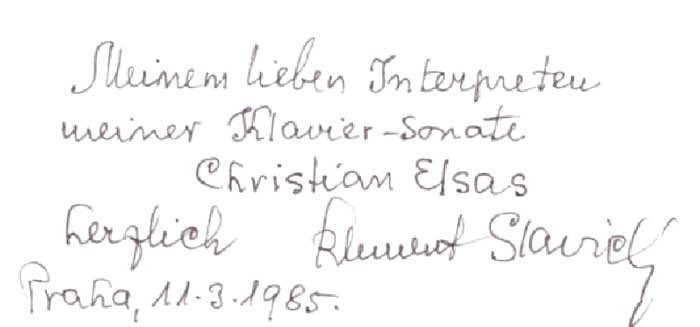 Meinem lieben Interpreten
meiner Klavier-Sonate
Christian Elsas
herzlich Klement Slavický
Praha, 11.3.1985.